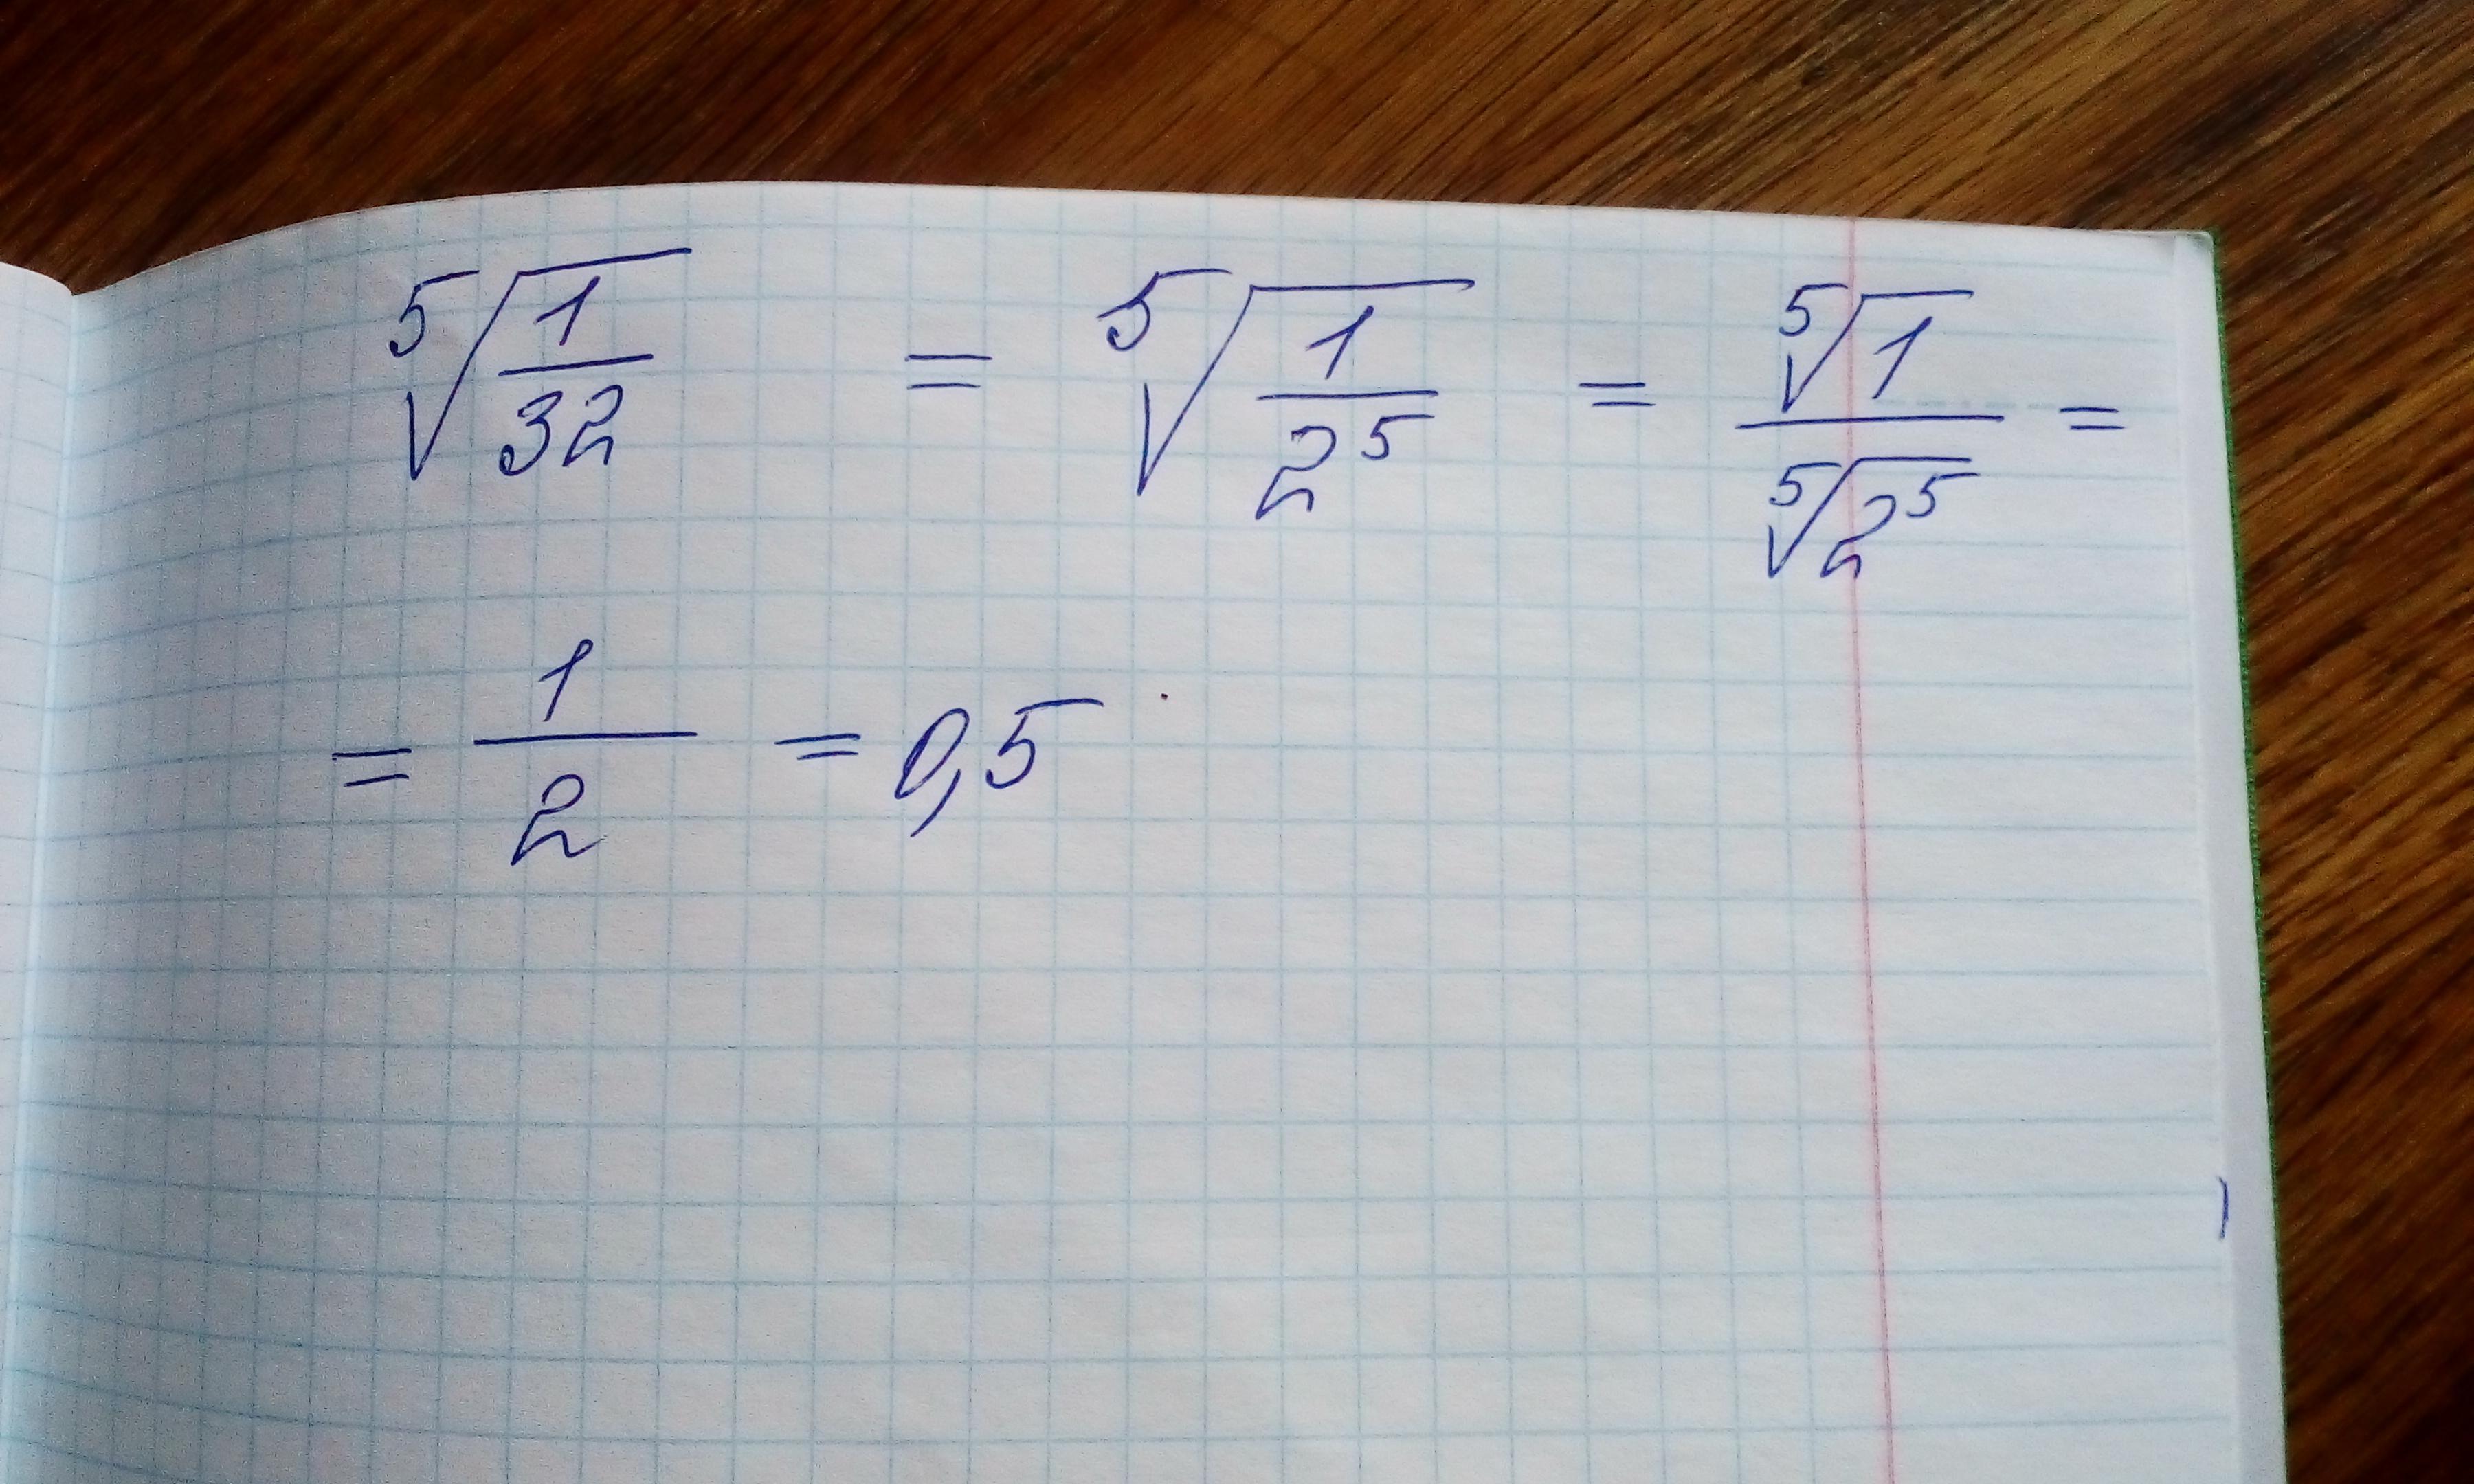 ⁵√(1/32) = ⁵√(1/2⁵) = ⁵√1/⁵√2⁵ =
= 1/2 = 0,5